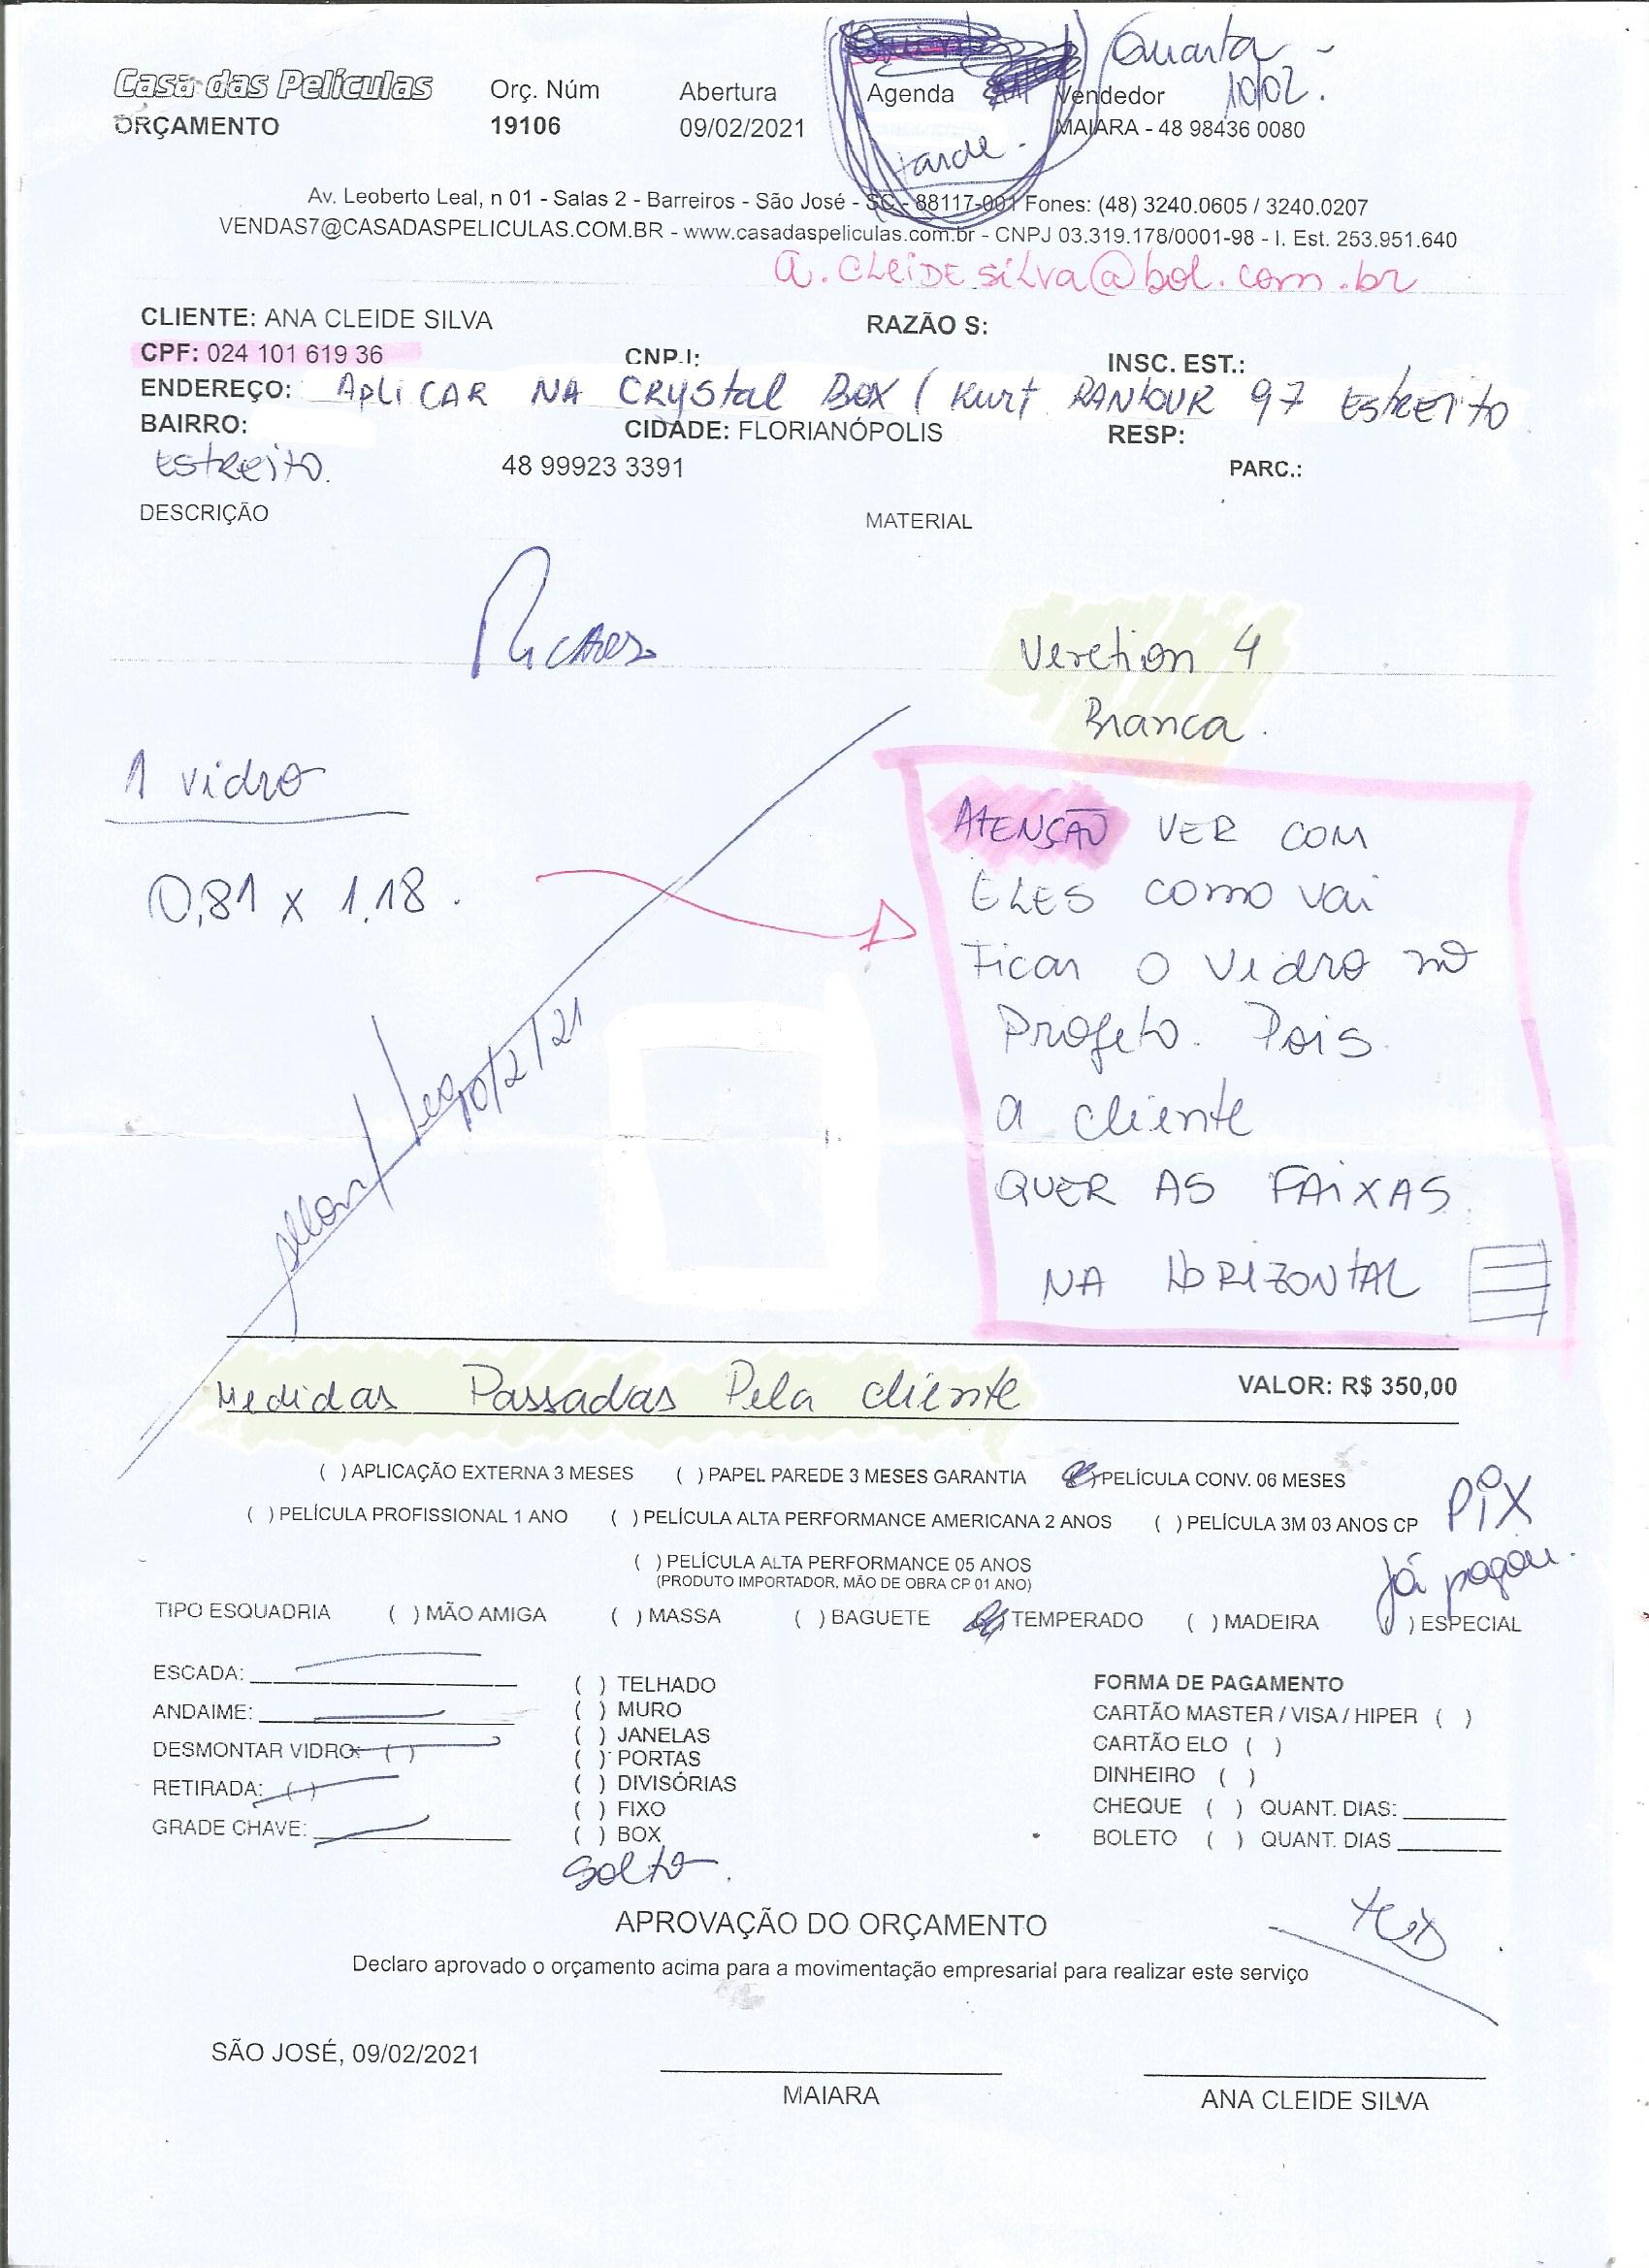 Quarta -
10/02.
Casa das Películas
Orç. Núm
Abertura
Agenda
Vendedor
ORÇAMENTO
19106
09/02/2021
MAIARA - 48 98436 0080
tarde.
Av. Leoberto Leal, n 01 - Salas 2 - Barreiros - São José - SC - 88117-001 Fones: (48) 3240.0605 / 3240.0207
VENDAS7@CASADASPELICULAS.COM.BR - www.casadaspeliculas.com.br - CNPJ 03.319.178/0001-98 - I. Est. 253.951.640
a.CLEIDE.silva@bol.com.br
CLIENTE: ANA CLEIDE SILVA
RAZÃO S:
CPF: 024 101 619 36
CNPJ:
INSC. EST.:
ENDEREÇO: APLICAR NA CRYSTAL BOX / Kurt 97 ESTREITO
BAIRRO:
CIDADE: FLORIANÓPOLIS
RESP:
ESTREITO.
48 99923 3391
PARC.:
DESCRIÇÃO
MATERIAL
4
Branca.
1 vidro
0,81 x 1,18.
ATENÇÃO VER COM
ELES como vai
Ficar o vidro no
Projeto. Pois
a cliente
QUER AS FAIXAS
NA HORIZONTAL
10/2/21
Medidas Passadas Pela cliente
VALOR: R$ 350,00
( ) APLICAÇÃO EXTERNA 3 MESES ( ) PAPEL PAREDE 3 MESES GARANTIA ( ) PELÍCULA CONV. 06 MESES
( ) PELÍCULA PROFISSIONAL 1 ANO ( ) PELÍCULA ALTA PERFORMANCE AMERICANA 2 ANOS ( ) PELÍCULA 3M 03 ANOS CP
PIX
Já pagou.
( ) PELÍCULA ALTA PERFORMANCE 05 ANOS
(PRODUTO IMPORTADOR, MÃO DE OBRA CP 01 ANO)
TIPO ESQUADRIA ( ) MÃO AMIGA ( ) MASSA ( ) BAGUETE ( ) TEMPERADO ( ) MADEIRA ( ) ESPECIAL
ESCADA:
ANDAIME:
DESMONTAR VIDRO: ( )
RETIRADA: ( )
GRADE CHAVE:
( ) TELHADO
( ) MURO
( ) JANELAS
( ) PORTAS
( ) DIVISÓRIAS
( ) FIXO
( ) BOX
Solto.
FORMA DE PAGAMENTO
CARTÃO MASTER / VISA / HIPER ( )
CARTÃO ELO ( )
DINHEIRO ( )
CHEQUE ( ) QUANT. DIAS:
BOLETO ( ) QUANT. DIAS
APROVAÇÃO DO ORÇAMENTO
Declaro aprovado o orçamento acima para a movimentação empresarial para realizar este serviço
SÃO JOSÉ, 09/02/2021
MAIARA
ANA CLEIDE SILVA